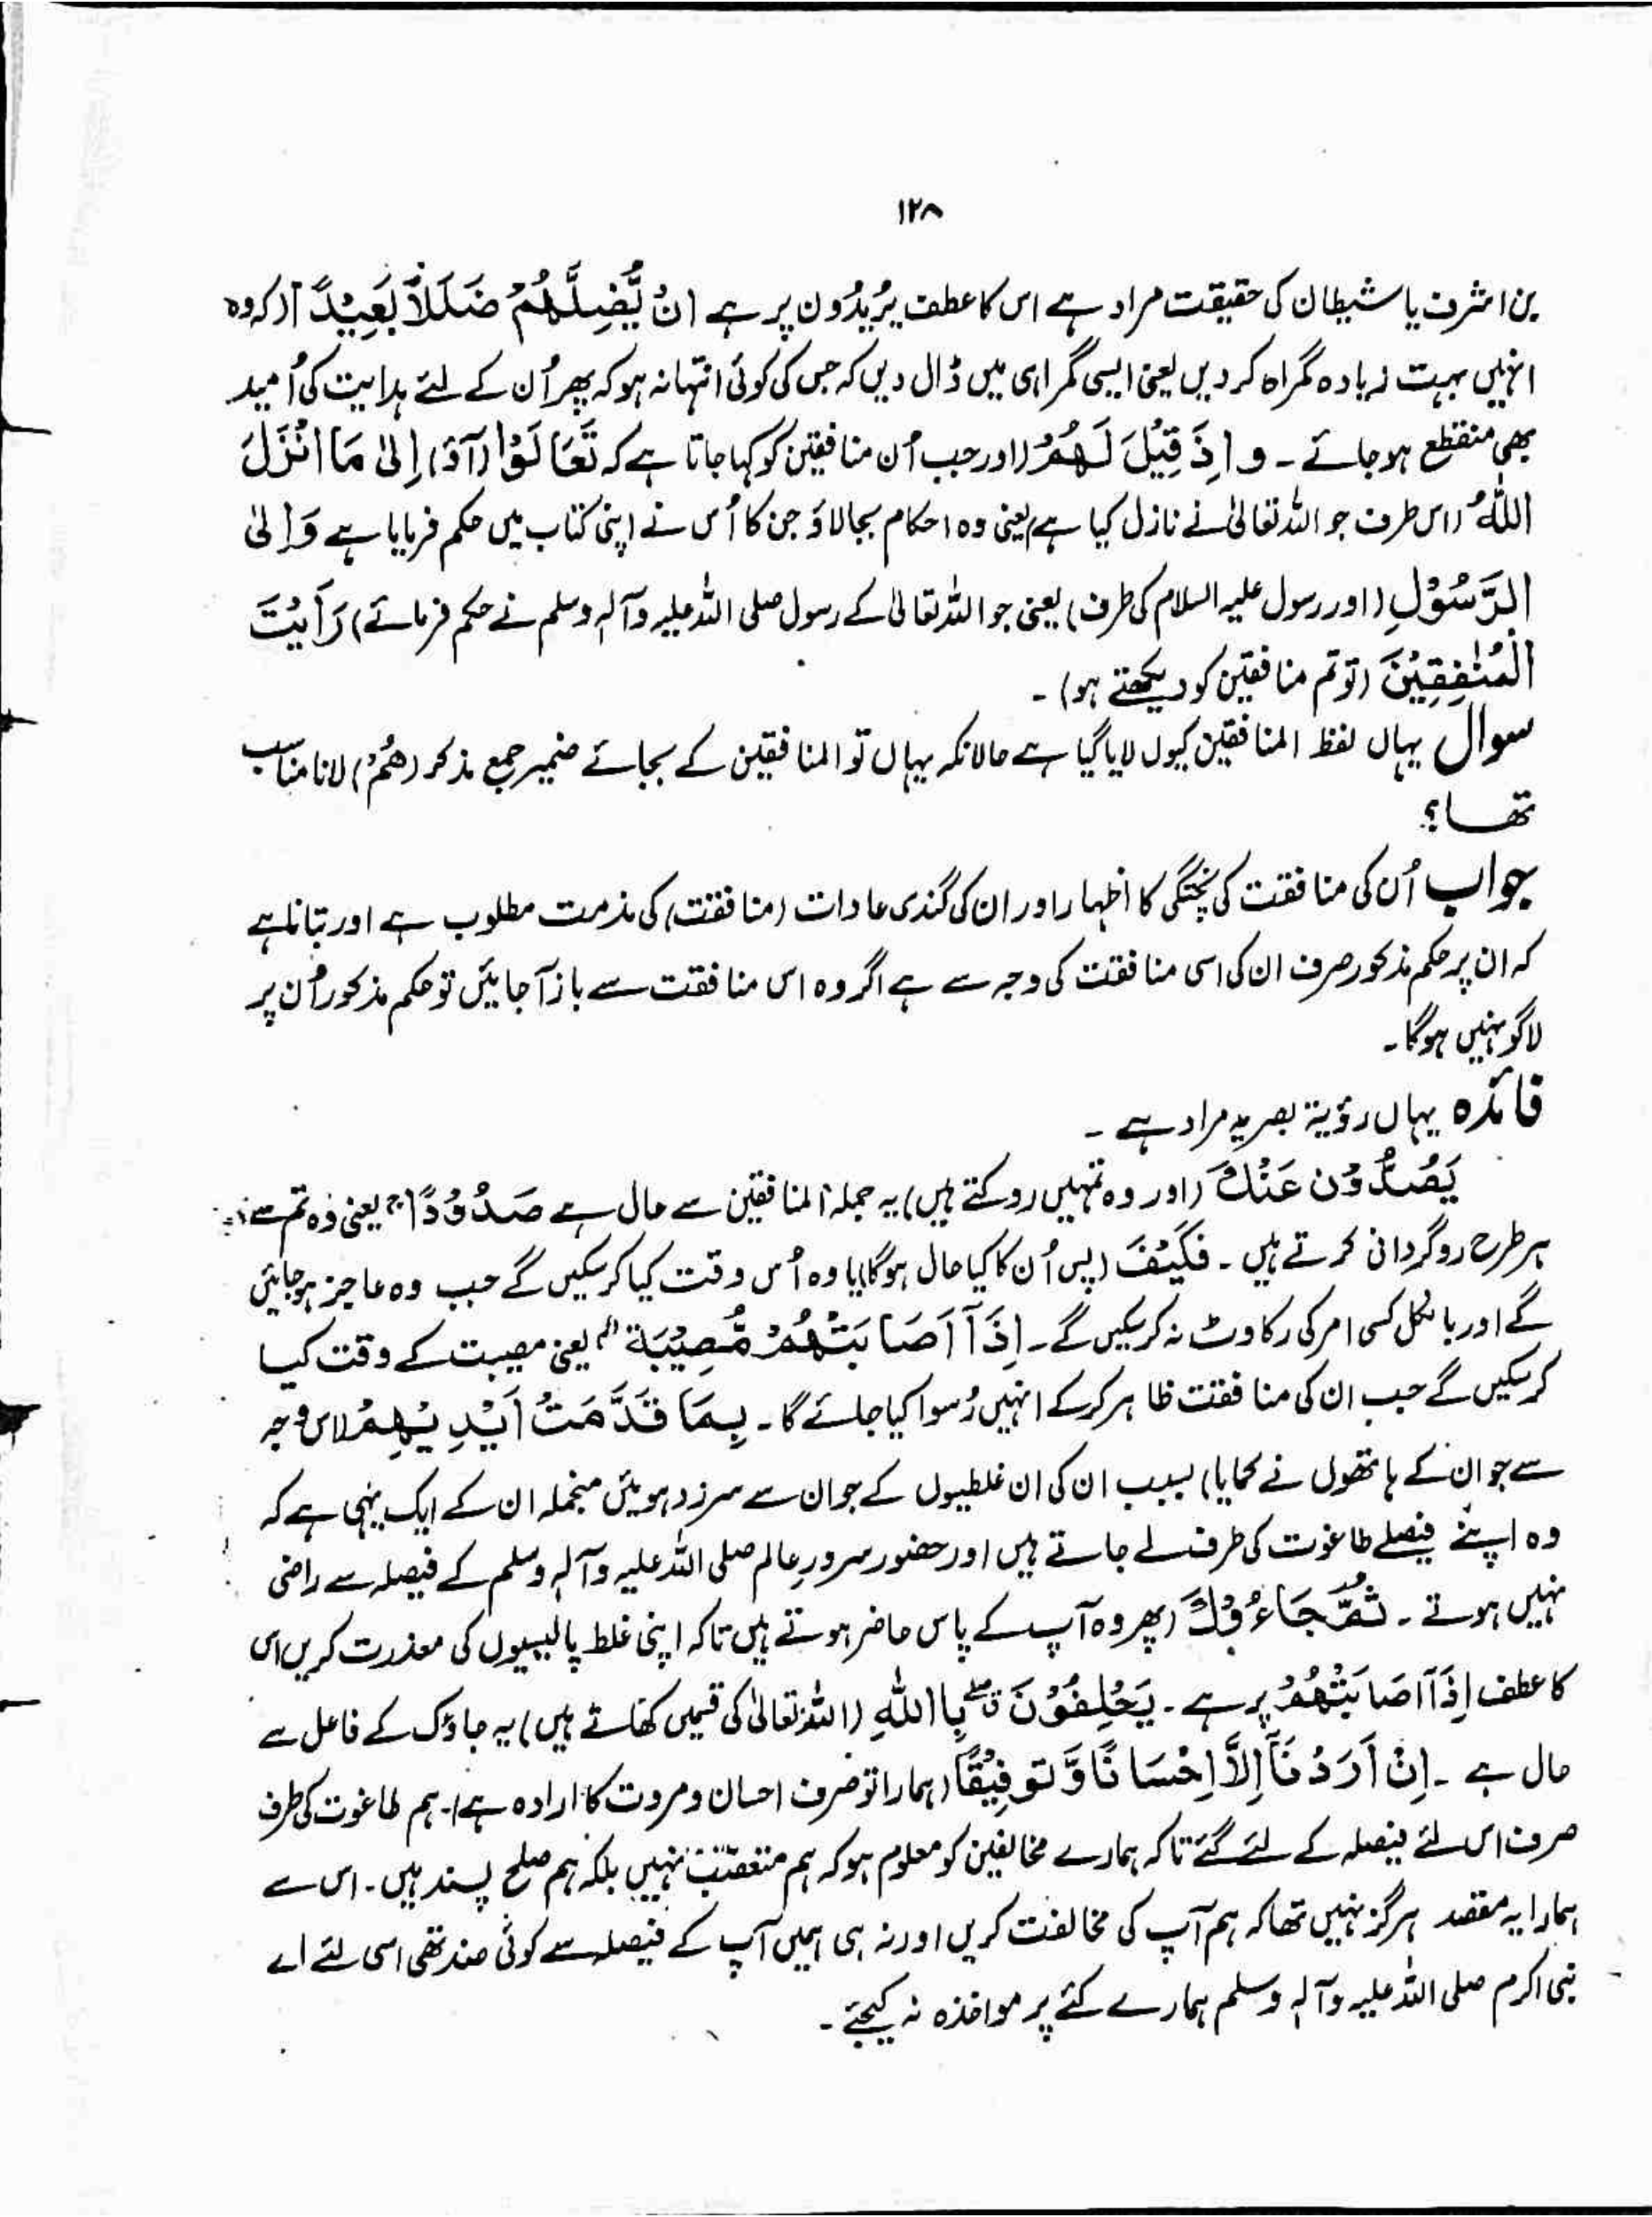 ۱۲۸
بن اشرف یا شیطان کی حقیقت مراد ہے اس کا عطف یُرِیدُون پر ہے اَنْ یُّضِلَّهُمْ ضَلَلاًۢ بَعِیْدًا (کہ وہ
انہیں بہت زیادہ گمراہ کر دیں یعنی ایسی گمراہی میں ڈال دیں کہ جس کی کوئی انتہا نہ ہو کہ پھر اُن کے لئے ہدایت کی اُمید
بھی منقطع ہو جائے ۔ و اِذَ قِیْلَ لَهُمْ (اور جب اُن منافقین کو کہا جاتا ہے کہ تَعَالَوْا (آؤ) اِلیٰ مَا اَنْزَلَ
اللّٰہُ (اس طرف جو اللہ تعالیٰ نے نازل کیا ہے) یعنی وہ احکام بجا لاؤ جن کا اُس نے اپنی کتاب میں حکم فرمایا ہے وَ اِلیٰ
الرَّسُوْلِ (اور رسول علیہ السلام کی طرف) یعنی جو اللہ تعالیٰ کے رسول صلی اللہ علیہ وآلہ وسلم نے حکم فرمائے) رَاَیْتَ
الْمُنٰفِقِیْنَ (تو تم منافقین کو دیکھتے ہو) ۔
سوال یہاں لفظ المنافقین کیوں لایا گیا ہے حالانکہ یہاں تو المنافقین کے بجائے ضمیر جمع مذکر (ھُمْ) لانا مناسب
تھا؟
جواب اُن کی منافقت کی پختگی کا اظہار اور ان کی گندی عادات (منافقت) کی مذمت مطلوب ہے اور بتانا ہے
کہ ان پر حکم مذکور صرف ان کی اسی منافقت کی وجہ سے ہے اگر وہ اس منافقت سے باز آ جائیں تو حکم مذکور اُن پر
لاگو نہیں ہوگا ۔
فائدہ یہاں رؤیۃ بصریہ مراد ہے ۔
یَصُدُّوْن عَنْكَ (اور وہ تمہیں روکتے ہیں) یہ جملہ المنافقین سے حال ہے صُدُوْدًا یعنی وہ تم سے
ہر طرح روگردانی کرتے ہیں ۔ فَکَیْفَ (پس اُن کا کیا حال ہوگا) یا وہ اُس وقت کیا کر سکیں گے جب وہ عاجز ہو جائیں
گے اور بالکل کسی امر کی رکاوٹ نہ کر سکیں گے ۔ اِذَآ اَصَابَتْهُمْ مُّصِیْبَة الخ یعنی مصیبت کے وقت کیا
کر سکیں گے جب ان کی منافقت ظاہر کر کے انہیں رُسوا کیا جائے گا ۔ بِمَا قَدَّمَتْ اَیْدِیْهِمْ (اس وجہ
سے جو ان کے ہاتھوں نے کمایا) بسبب ان کی ان غلطیوں کے جو ان سے سرزد ہوئیں منجملہ ان کے ایک یہی ہے کہ
وہ اپنے فیصلے طاغوت کی طرف لے جاتے ہیں اور حضور سرورِ عالم صلی اللہ علیہ وآلہ وسلم کے فیصلہ سے راضی
نہیں ہوتے ۔ ثُمَّ جَاءُوْكَ (پھر وہ آپ کے پاس حاضر ہوتے ہیں تاکہ اپنی غلط پالیسیوں کی معذرت کریں اس
کا عطف اِذَآ اَصَابَتْهُمْ پر ہے ۔ یَحْلِفُوْنَ قۖ بِاللّٰہِ (اللہ تعالیٰ کی قسمیں کھاتے ہیں) یہ جاؤک کے فاعل سے
حال ہے ۔ اِنْ اَرَدْنَآ اِلَّا اِحْسَانًا وَّ تَوفِیْقًا (ہمارا تو صرف احسان و مروت کا ارادہ ہے) ۔ ہم طاغوت کی طرف
صرف اس لئے فیصلہ کے لئے گئے تاکہ ہمارے مخالفین کو معلوم ہو کہ ہم متعصّب نہیں بلکہ ہم صلح پسند ہیں ۔ اس سے
ہمارا یہ مقصد ہرگز نہیں تھا کہ ہم آپ کی مخالفت کریں اور نہ ہی ہمیں آپ کے فیصلہ سے کوئی ضد تھی اسی لئے اے
نبی اکرم صلی اللہ علیہ وآلہ وسلم ہمارے کئے پر مواخذہ نہ کیجئے ۔